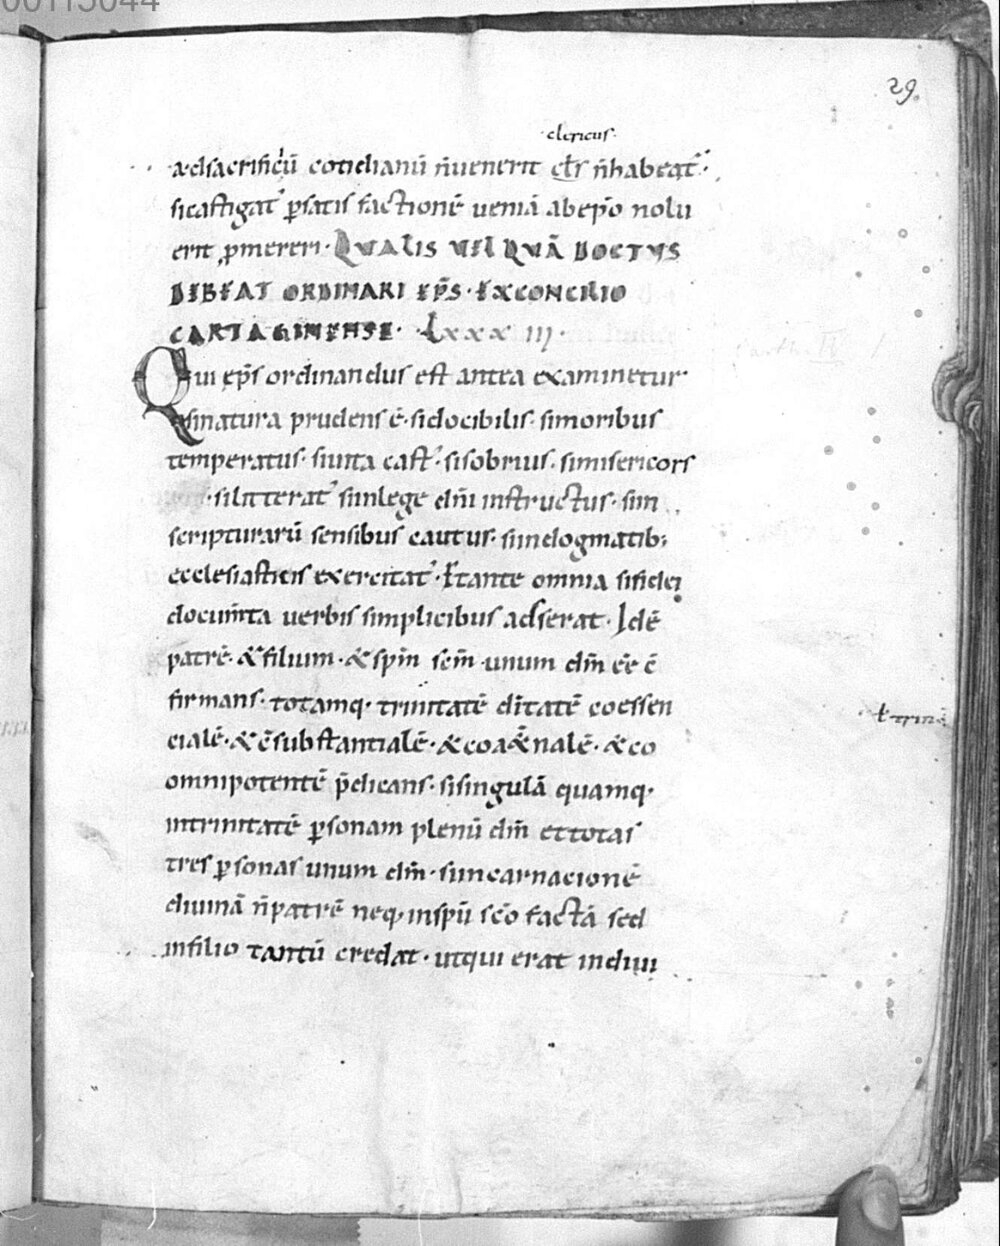 00115044
29.
clericus.
adsacrificiũ cotidianũ ñuenerit cl̃s ñhabeat̃.
sicastigat̃ ꝑsatis factionẽ ueniã abep̃o nolu
erit ꝓmereri. QUALIS UEL QUÃ DOCTUS
DEBEAT ORDINARI EP̃S. EX CONCILIO
CARTAGINENSE. LXXXIII.
Qui ep̃s ordinandus est antea examinetur
sinatura prudens ẽ. sidocibilis. simoribus
temperatus. siuita cast̃. sisobrius. simisericors
.silitterat̃ sinlege dñi instructus. sin
scripturarũ sensibus cautus. sindogmatib;
ecclesiasticis exercitat̃. Et ante omnia sifidei
documñta uerbis simplicibus adserat. Idẽ
patrẽ. &filium. &spm̃ scm̃ unum dm̃ eẽ ẽ
firmans. totamq. trinitatẽ dĩtatẽ coessen
ł trinẽ
cialẽ. &c̃substantialẽ. &coa&̃nalẽ. &co
omnipotentẽ p̃dicans. sisingulã quamq.
intrinitatẽ ꝑsonam plenũ dm̃ ettotas
tres ꝑsonas unum dm̃. sincarnacionẽ
diuinã ñpatrẽ neq. inspũ sc̃o factã sed
infilio tantũ credat. utqui erat indiui